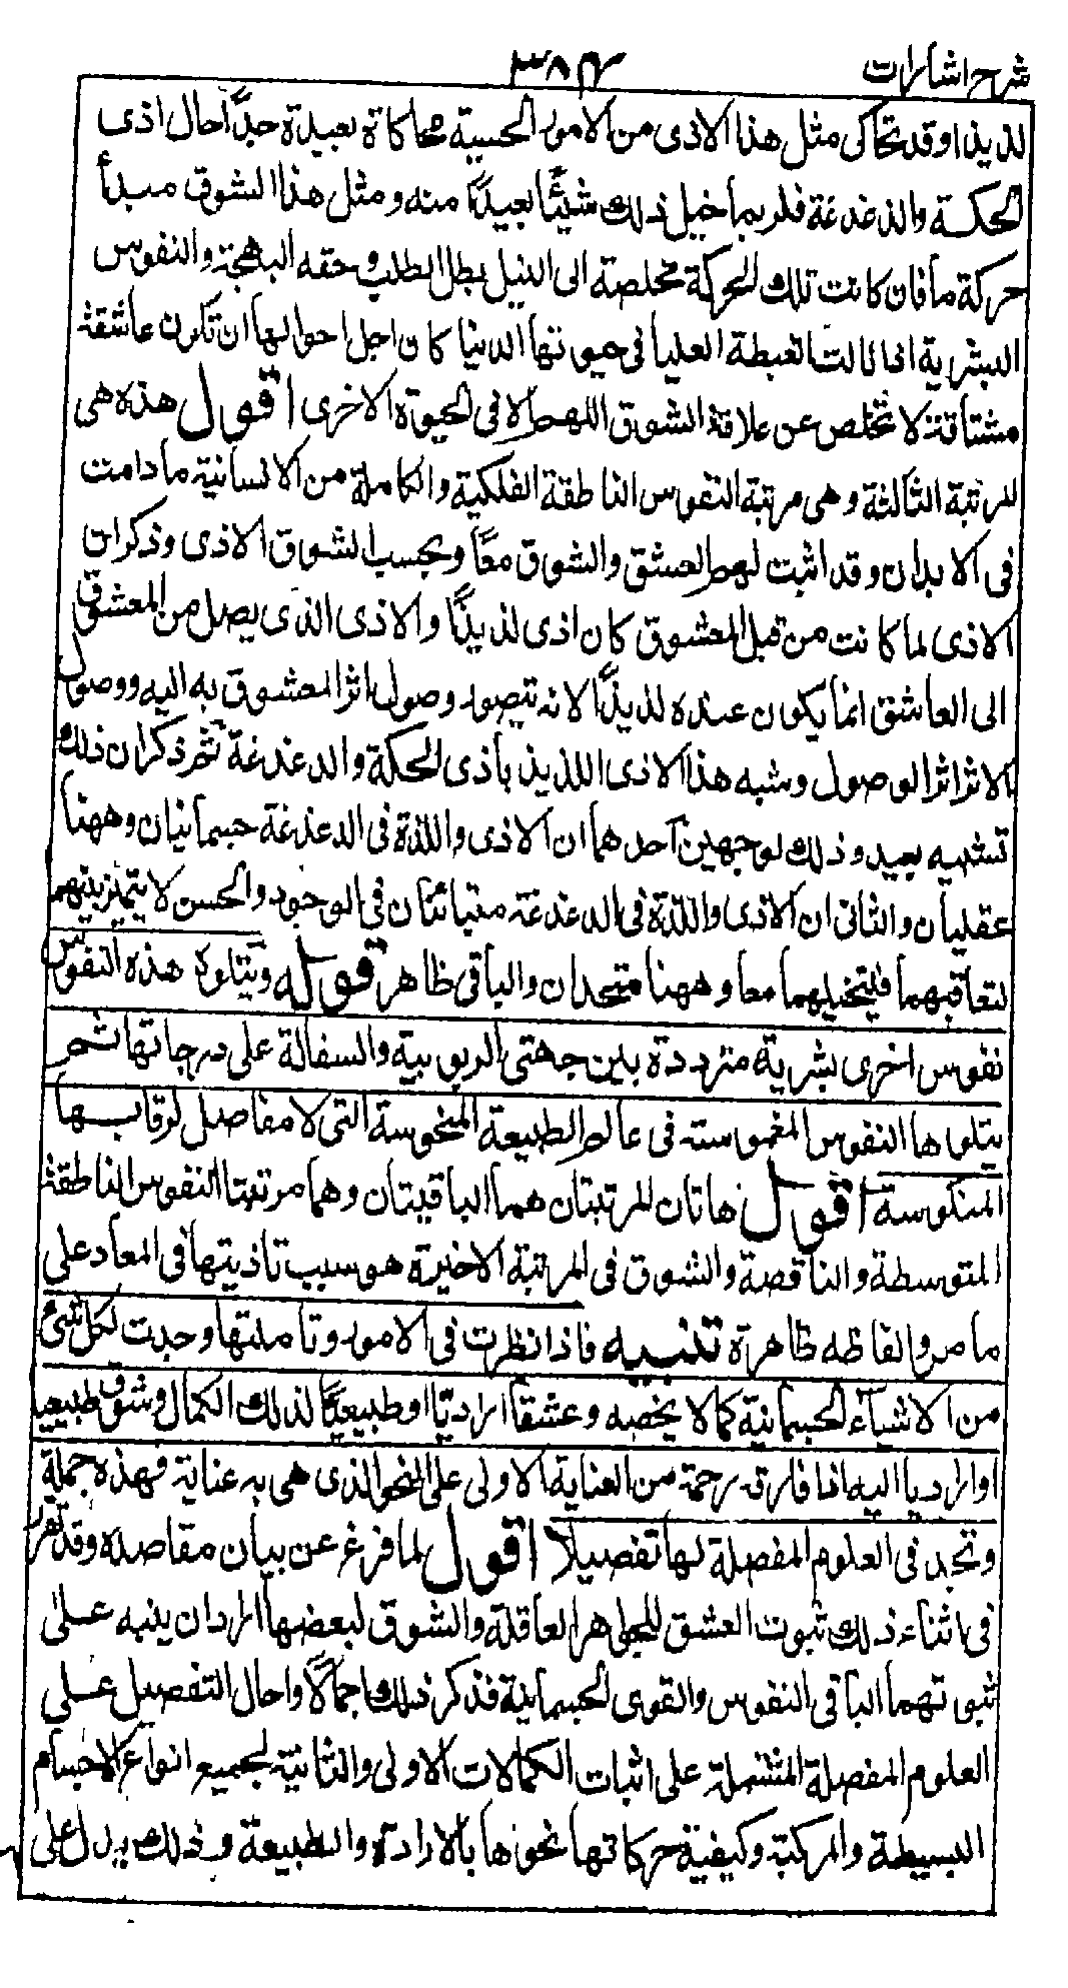 شرح اشارات
۳۸۴
لذيذا وقد تحاكى مثل هذا الاذى من الامور الحسية محاكاة بعيدة جدًّا حال اذى
الحكة والدغدغة فلربما خيل ذلك شيئًا بعيدًا منه ومثل هذا الشوق مبدأ
حركة ما فان كانت تلك الحركة مخلصة الى النيل بطل الطلب وحقه البهجة والنفوس
البشرية اذا نالت الغبطة العليا فى حيوتها الدنيا كان اجل احوالها ان تكون عاشقة
مشتاقة لا تخلص عن علاقة الشوق اللهم الا فى الحيوة الاخرى اقول هذه هى
المرتبة الثالثة وهى مرتبة النفوس الناطقة الفلكية والكاملة من الانسانية مادامت
فى الابدان وقد اثبت لهم العشق والشوق معًا وبحسب الشوق الاذى وذكر ان
الاذى لما كانت من قبل المعشوق كان اذى لذيذًا والاذى الذى يصل من المعشوق
الى العاشق انما يكون عنده لذيذًا لانه تتصور وصول اثر المعشوق به اليه ووصول
الاثر اثر الوصول وشبه هذا الاذى اللذيذ باذى الحكة والدغدغة ثم ذكر ان ذلك
تشبيه بعيد وذلك لوجهين احدهما ان الاذى واللذة فى الدغدغة جسمانيان وههنا
عقليان والثانى ان الاذى واللذة فى الدغدغة متبائنان فى الوجود والحس لا يتميز بينهما
لتعاقبهما فيتخيلهما معا وههنا متحدان والباقى ظاهر قوله ويتلوه هذه النفوس
نفوس اخرى بشرية مترددة بين جهتى الربوبية والسفالة على درجاتها ثم
يتلوها النفوس المغموسة فى عالم الطبيعة المنحوسة التى لا مفاصل لرقابها
المنكوسة اقول هاتان المرتبتان هما الباقيتان وهما مرتبتا النفوس الناطقة
المتوسطة والناقصة والشوق فى المرتبة الاخيرة هو سبب تاذيتها فى المعاد على
ما مر والفاظه ظاهرة تنبيه فاذا نظرت فى الامور وتاملتها وجدت لكل شئ
من الاشياء الجسمانية كمالا يخصه وعشقا اراديًّا او طبيعيًّا لذلك الكمال وشوقا طبيعيا
او اراديا اليه اذا فارقه رحمة من العناية الاولى على النحو الذى هى به عناية فهذه جملة
وتجد فى العلوم المفصلة لها تفصيلا اقول لما فرغ عن بيان مقاصده وقد ظهر
فى اثناء ذلك ثبوت العشق للجواهر العاقلة والشوق لبعضها اراد ان ينبه على
ثبوتهما لباقى النفوس والقوى الجسمانية فذكر ذلك اجمالًا واحال التفصيل على
العلوم المفصلة المشتملة على اثبات الكمالات الاولى والثانية لجميع انواع الاجسام
البسيطة والمركبة وكيفية حركاتها نحوها بالارادة والطبيعة وذلك يدل على